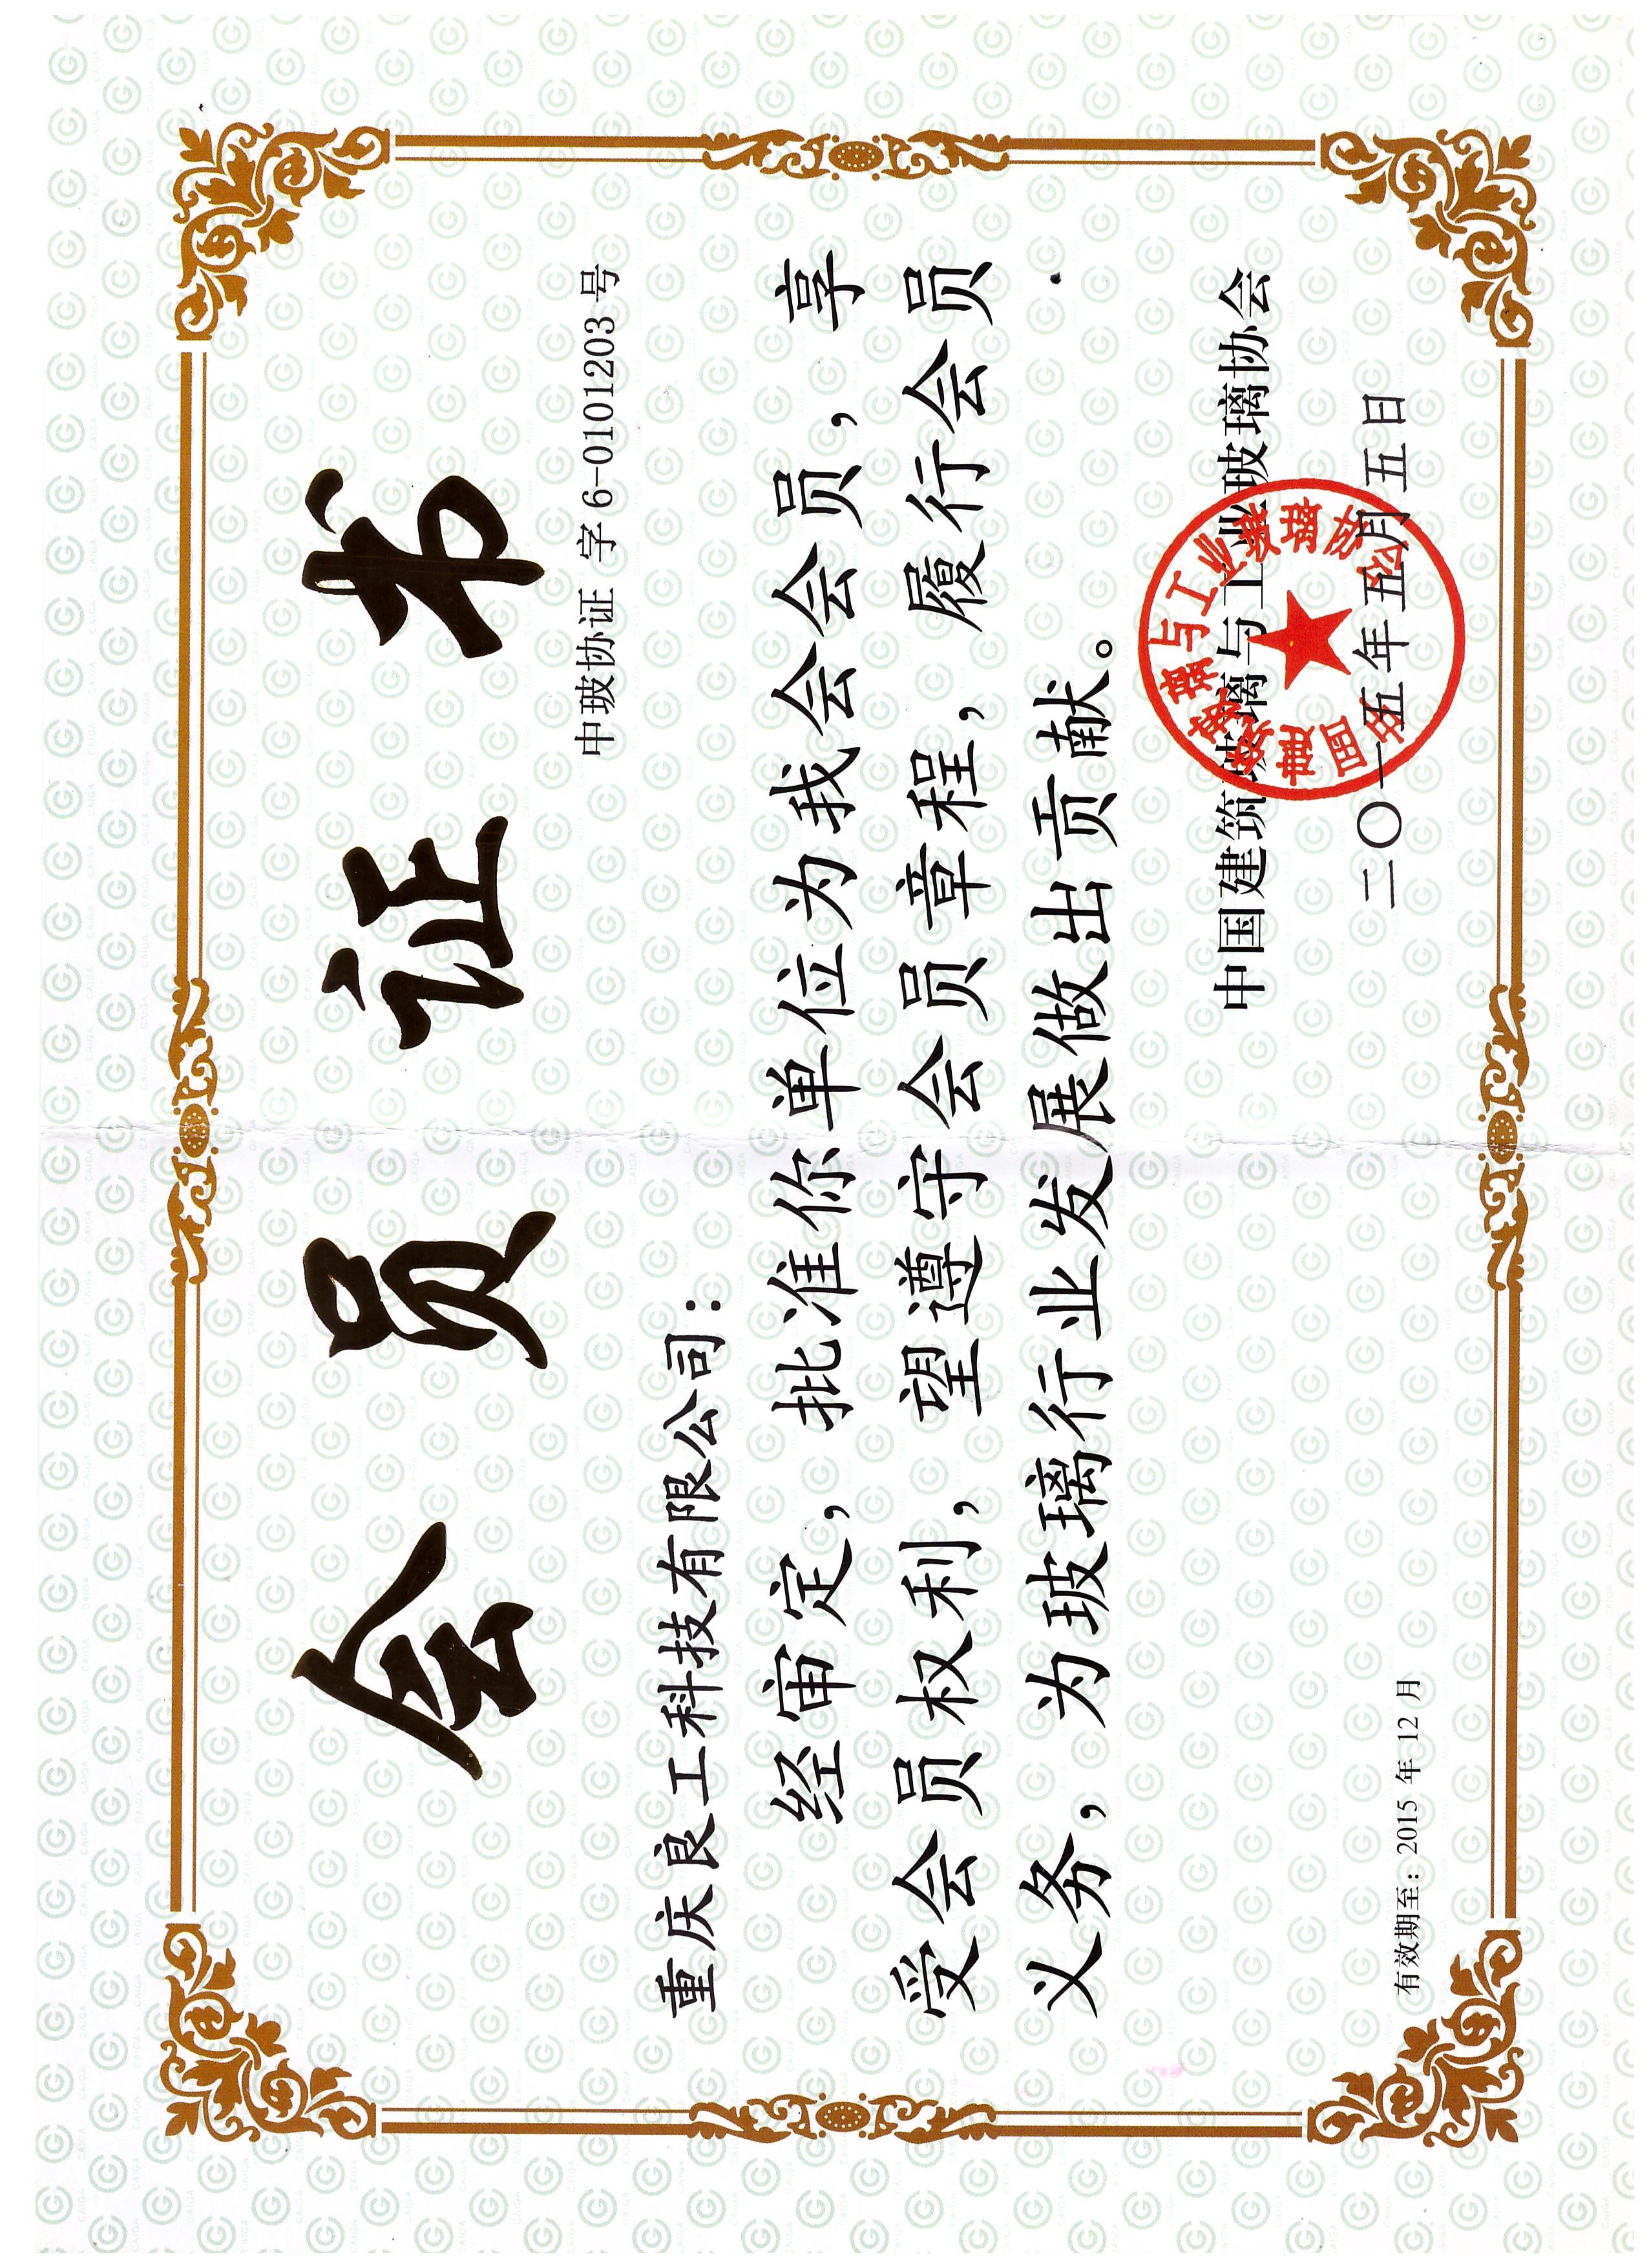 会员证书
中玻协证 字 6-0101203 号
重庆良工科技有限公司：
经审定，批准你单位为我会会员，享
受会员权利，望遵守会员章程，履行会员
义务，为玻璃行业发展做出贡献。
中国建筑玻璃与工业玻璃协会
中国建筑玻璃与工业玻璃协会
二〇一五年五月五日
有效期至：2015 年 12 月